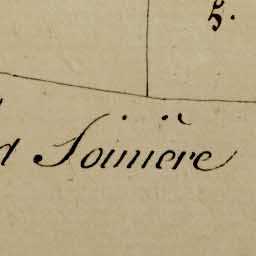 5.
Soinière